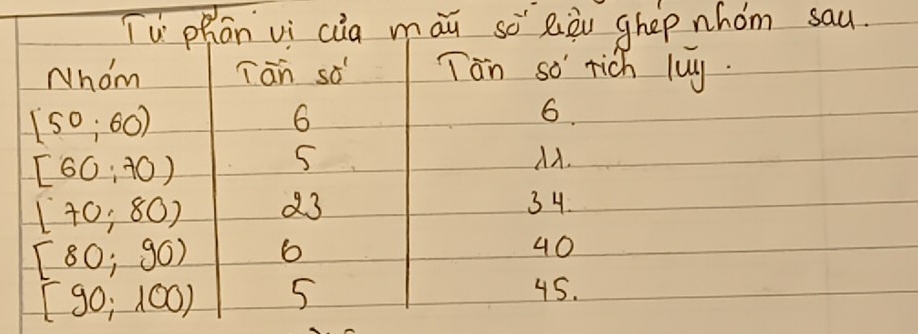 Tứ phân vị của mẫu số liệu ghép nhóm sau.
Nhóm Tần số Tần số tích lũy.
[50; 60) 6 6.
[60; 70) 5 11.
[70; 80) 23 34.
[80; 90) 6 40
[90; 100) 5 45.